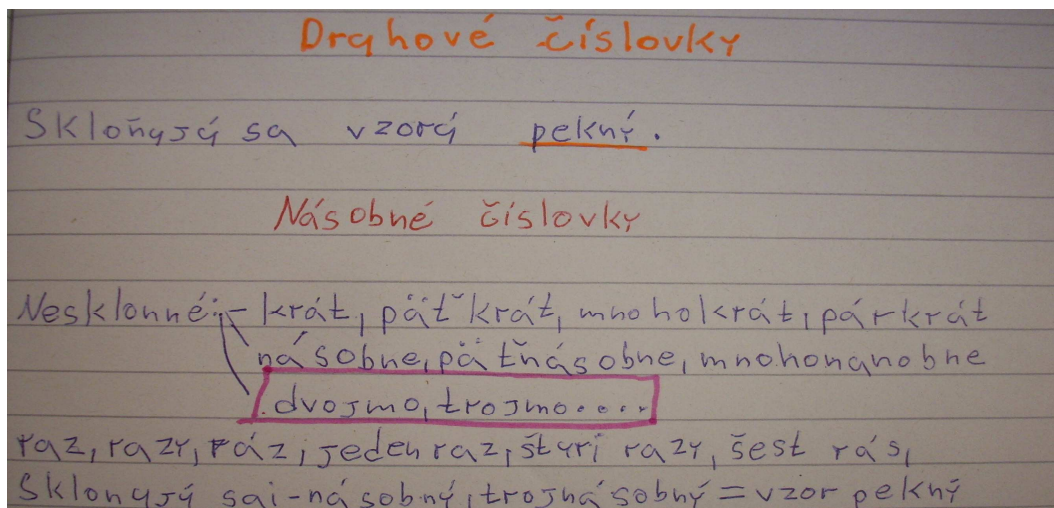 Druhové číslovky
Skloňujú sa vzorú pekný.
Násobné číslovky
Nesklonné: - krát, päťkrát, mnohokrát, párkrát
násobne, päťnásobne, mnohonanobne
dvojmo, trojmo....
raz, razy, ráz, jeden raz, štyri razy, šest rás,
Sklonujú sai-násobný, trojnásobný = vzor pekný